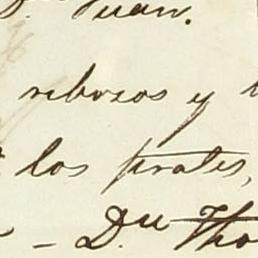 D. Juan.
rebozos y
los prates,
- D.n Tho